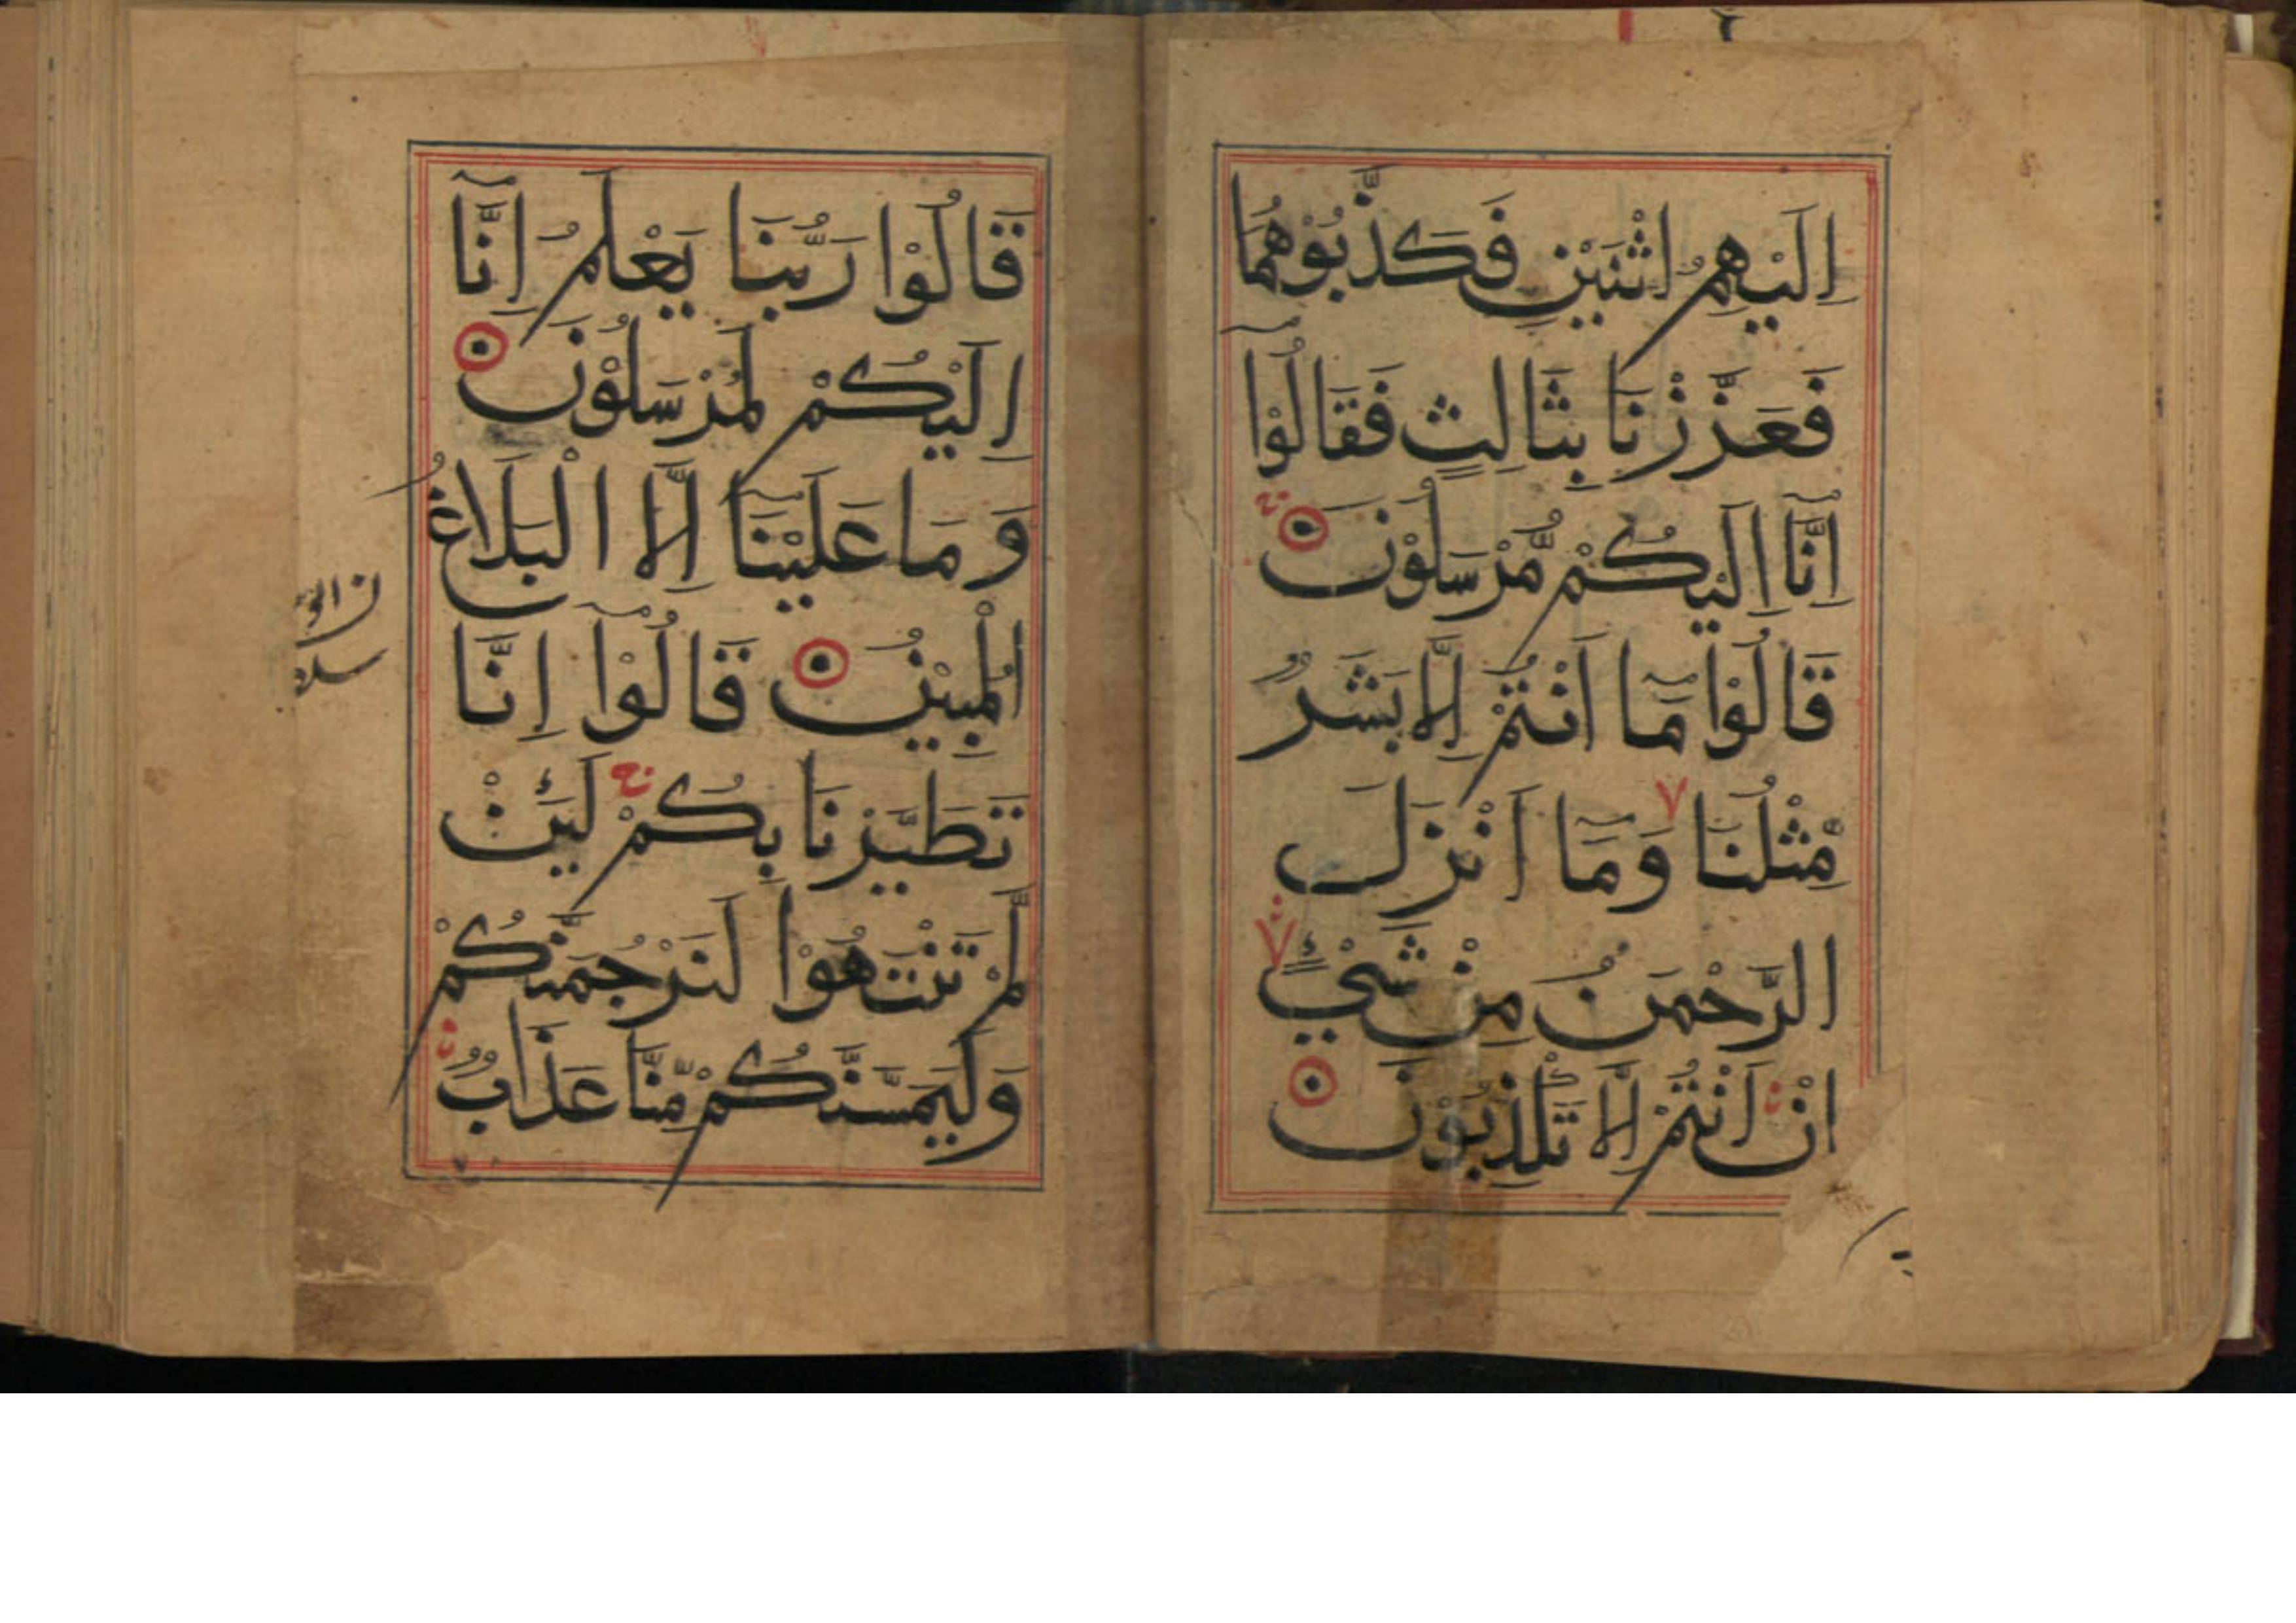 اِلَيْهِمُ اثْنَيْنِ فَكَذَّبُوْهُمَا
فَعَزَّزْنَا بِثَالِثٍ فَقَالُوْٓا
اِنَّآ اِلَيْكُمْ مُّرْسَلُوْنَ
قَالُوْا مَآ اَنْتُمْ اِلَّا بَشَرٌ
مِّثْلُنَا وَمَآ اَنْزَلَ
الرَّحْمٰنُ مِنْ شَيْءٍ
اِنْ اَنْتُمْ اِلَّا تَكْذِبُوْنَ
قَالُوْا رَبُّنَا يَعْلَمُ اِنَّآ
اِلَيْكُمْ لَمُرْسَلُوْنَ
وَمَا عَلَيْنَآ اِلَّا الْبَلَاغُ
الْمُبِيْنُ قَالُوْٓا اِنَّا
تَطَيَّرْنَا بِكُمْ لَئِنْ
لَّمْ تَنْتَهُوْا لَنَرْجُمَنَّكُمْ
وَلَيَمَسَّنَّكُمْ مِّنَّا عَذَابٌ